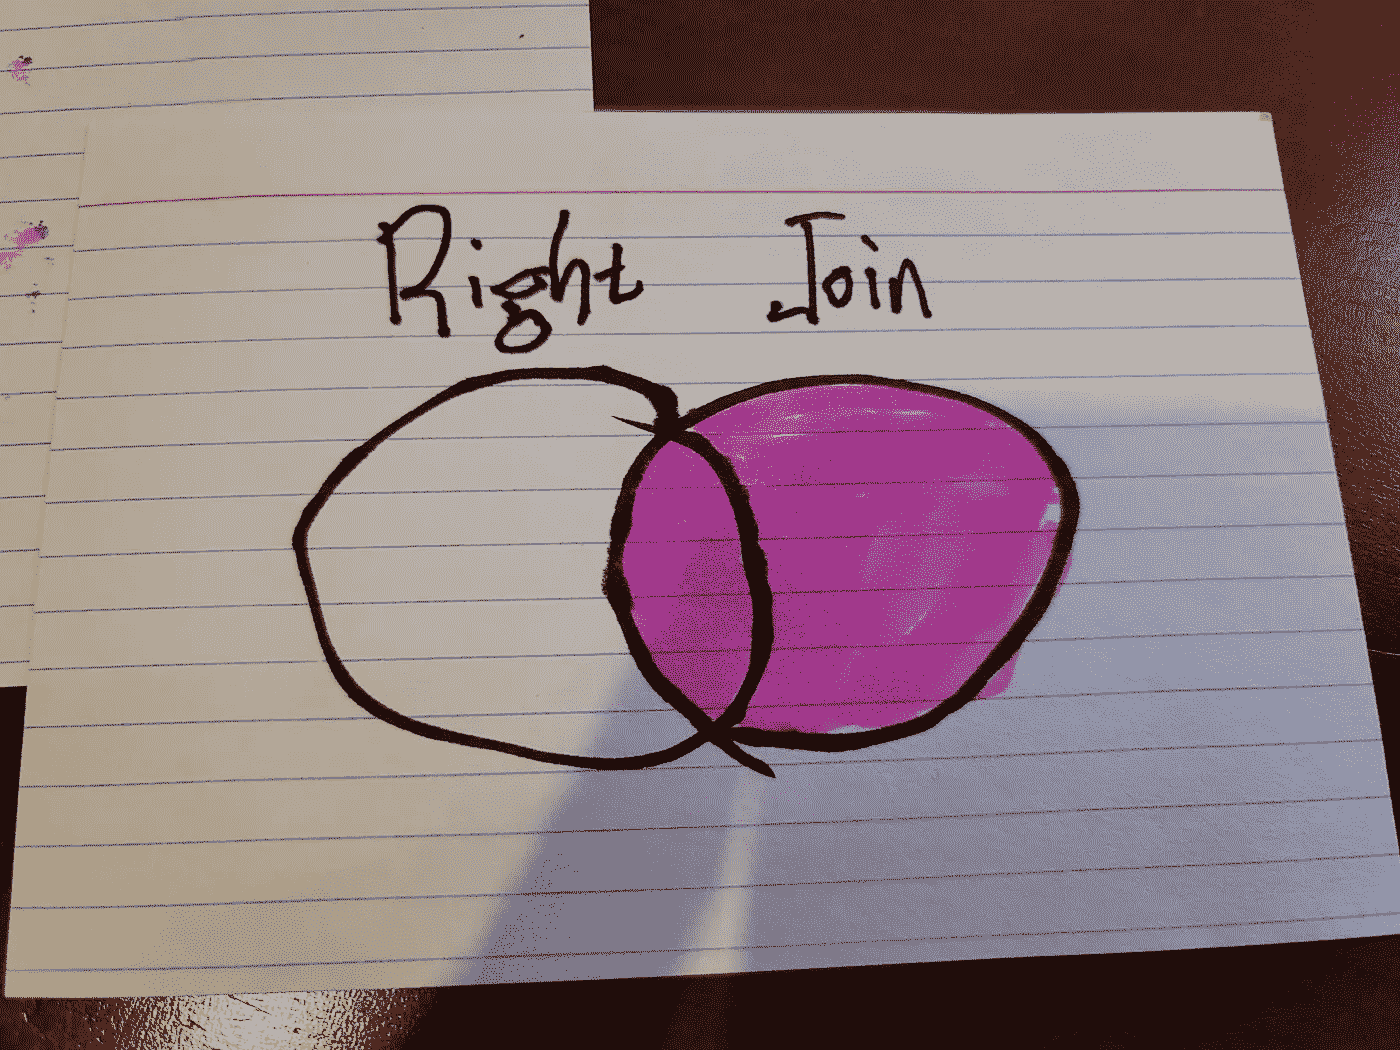 Right Join